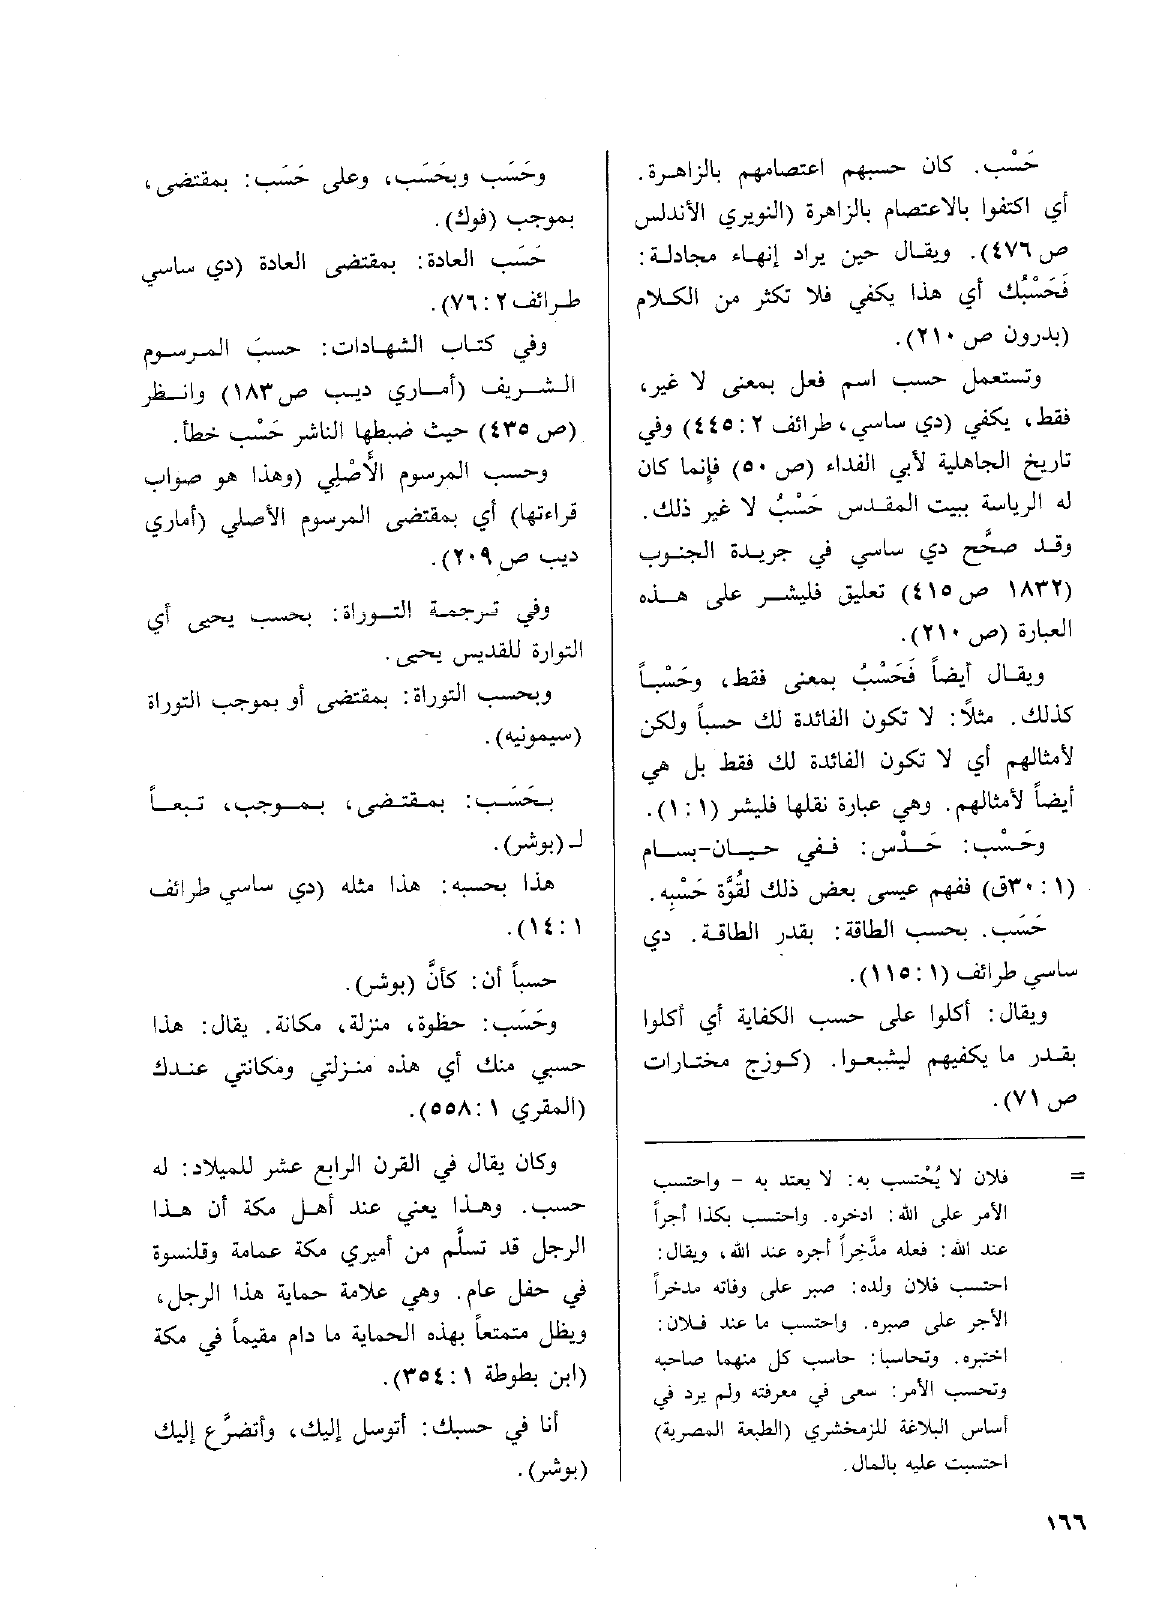 حَسْب. كان حسبهم اعتصامهم بالزاهرة.
أي اكتفوا بالاعتصام بالزاهرة (النويري الأندلس
ص ٤٧٦). ويقال حين يراد إنهاء مجادلة:
فَحَسْبُك أي هذا يكفي فلا تكثر من الكلام
(بدرون ص ٢١٠).
وتستعمل حسب اسم فعل بمعنى لا غير،
فقط، يكفي (دي ساسي، طرائف ٢: ٤٤٥) وفي
تاريخ الجاهلية لأبي الفداء (ص ٥٠) فإنما كان
له الرياسة ببيت المقدس حَسْبُ لا غير ذلك.
وقد صحَّح دي ساسي في جريدة الجنوب
(١٨٣٢ ص ٤١٥) تعليق فليشر على هذه
العبارة (ص ٢١٠).
ويقال أيضاً فَحَسْبُ بمعنى فقط، وحَسْباً
كذلك. مثلاً: لا تكون الفائدة لك حسباً ولكن
لأمثالهم أي لا تكون الفائدة لك فقط بل هي
أيضاً لأمثالهم. وهي عبارة نقلها فليشر (١: ١).
وحَسْب: حَدْس: ففي حيان-بسام
(١: ٣٠ق) ففهم عيسى بعض ذلك لقُوَّة حَسْبِه.
حَسَب. بحسب الطاقة: بقدر الطاقة. دي
ساسي طرائف (١: ١١٥).
ويقال: أكلوا على حسب الكفاية أي أكلوا
بقدر ما يكفيهم ليشبعوا. (كوزج مختارات
ص ٧١).
= فلان لا يُحْتسب به: لا يعتد به - واحتسب
الأمر على الله: ادخره. واحتسب بكذا أجراً
عند الله: فعله مدَّخراً أجره عند الله، ويقال:
احتسب فلان ولده: صبر على وفاته مدخراً
الأجر على صبره. واحتسب ما عند فلان:
اختبره. وتحاسبا: حاسب كل منهما صاحبه
وتحسب الأمر: سعى في معرفته ولم يرد في
أساس البلاغة للزمخشري (الطبعة المصرية)
احتسبت عليه بالمال.
وحَسَب وبحَسَب، وعلى حَسَب: بمقتضى،
بموجب (فوك).
حَسَب العادة: بمقتضى العادة (دي ساسي
طرائف ٢: ٧٦).
وفي كتاب الشهادات: حسبَ المرسوم
الشريف (أماري ديب ص ١٨٣) وانظر
(ص ٤٣٥) حيث ضبطها الناشر حَسْب خطأ.
وحسب المرسوم الأَصْلِي (وهذا هو صواب
قراءتها) أي بمقتضى المرسوم الأصلي (أماري
ديب ص ٢٠٩).
وفي ترجمة التوراة: بحسب يحيى أي
التوارة للقديس يحيى.
وبحسب التوراة: بمقتضى أو بموجب التوراة
(سيمونيه).
بحَسَب: بمقتضى، بموجب، تبعاً
لـ (بوشر).
هذا بحسبه: هذا مثله (دي ساسي طرائف
١: ١٤).
حسباً أن: كأنَّ (بوشر).
وحَسَب: حظوة، منزلة، مكانة. يقال: هذا
حسبي منك أي هذه منزلتي ومكانتي عندك
(المقري ١: ٥٥٨).
وكان يقال في القرن الرابع عشر للميلاد: له
حسب. وهذا يعني عند أهل مكة أن هذا
الرجل قد تسلَّم من أميري مكة عمامة وقلنسوة
في حفل عام. وهي علامة حماية هذا الرجل،
ويظل متمتعاً بهذه الحماية ما دام مقيماً في مكة
(ابن بطوطة ١: ٣٥٤).
أنا في حسبك: أتوسل إليك، وأتضرَّع إليك
(بوشر).
١٦٦